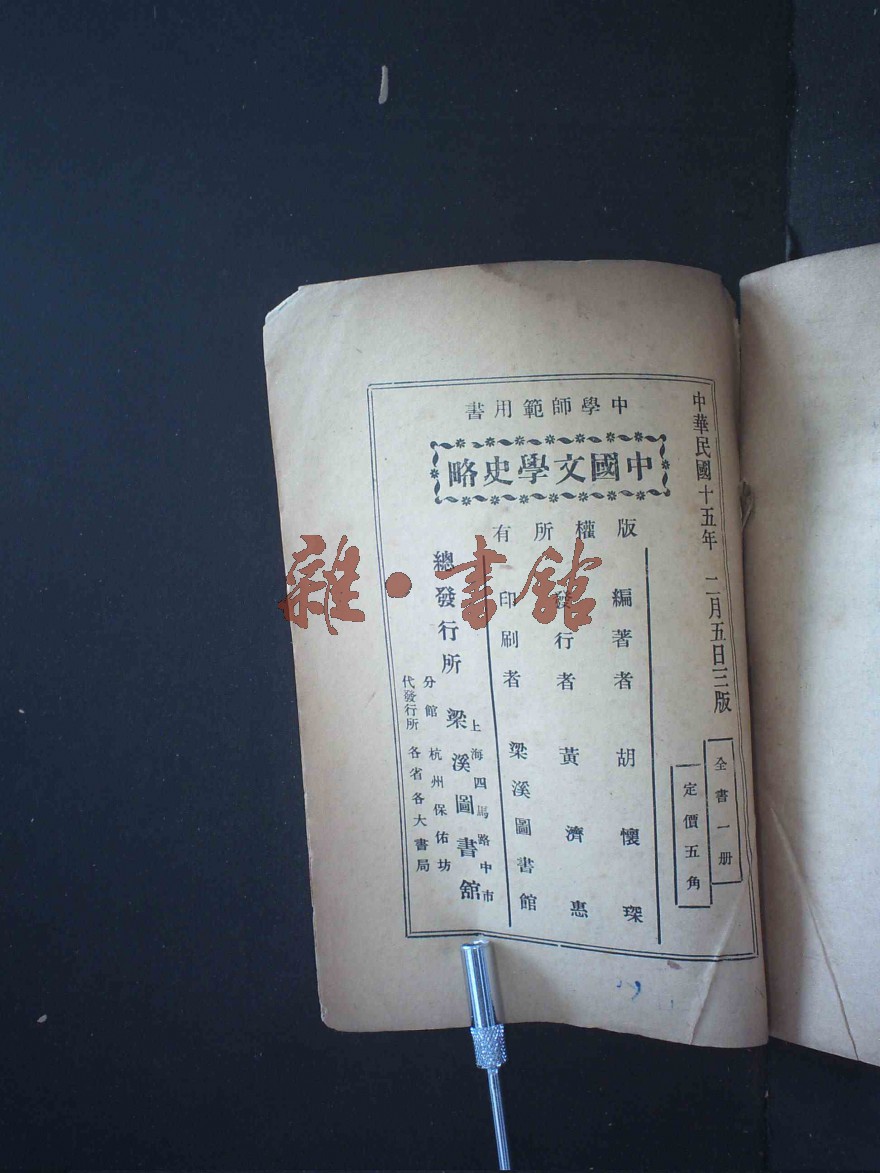 中華民國十五年 二月五日三版
全書一册
定價五角
中學師範用書
中國文學史略
版權所有
編著者 胡懷琛
發行者 黃濟惠
印刷者 梁溪圖書館
總發行所 上海四馬路中市 梁溪圖書舘
分館 杭州保佑坊
代發行所 各省各大書局
雜·書舘